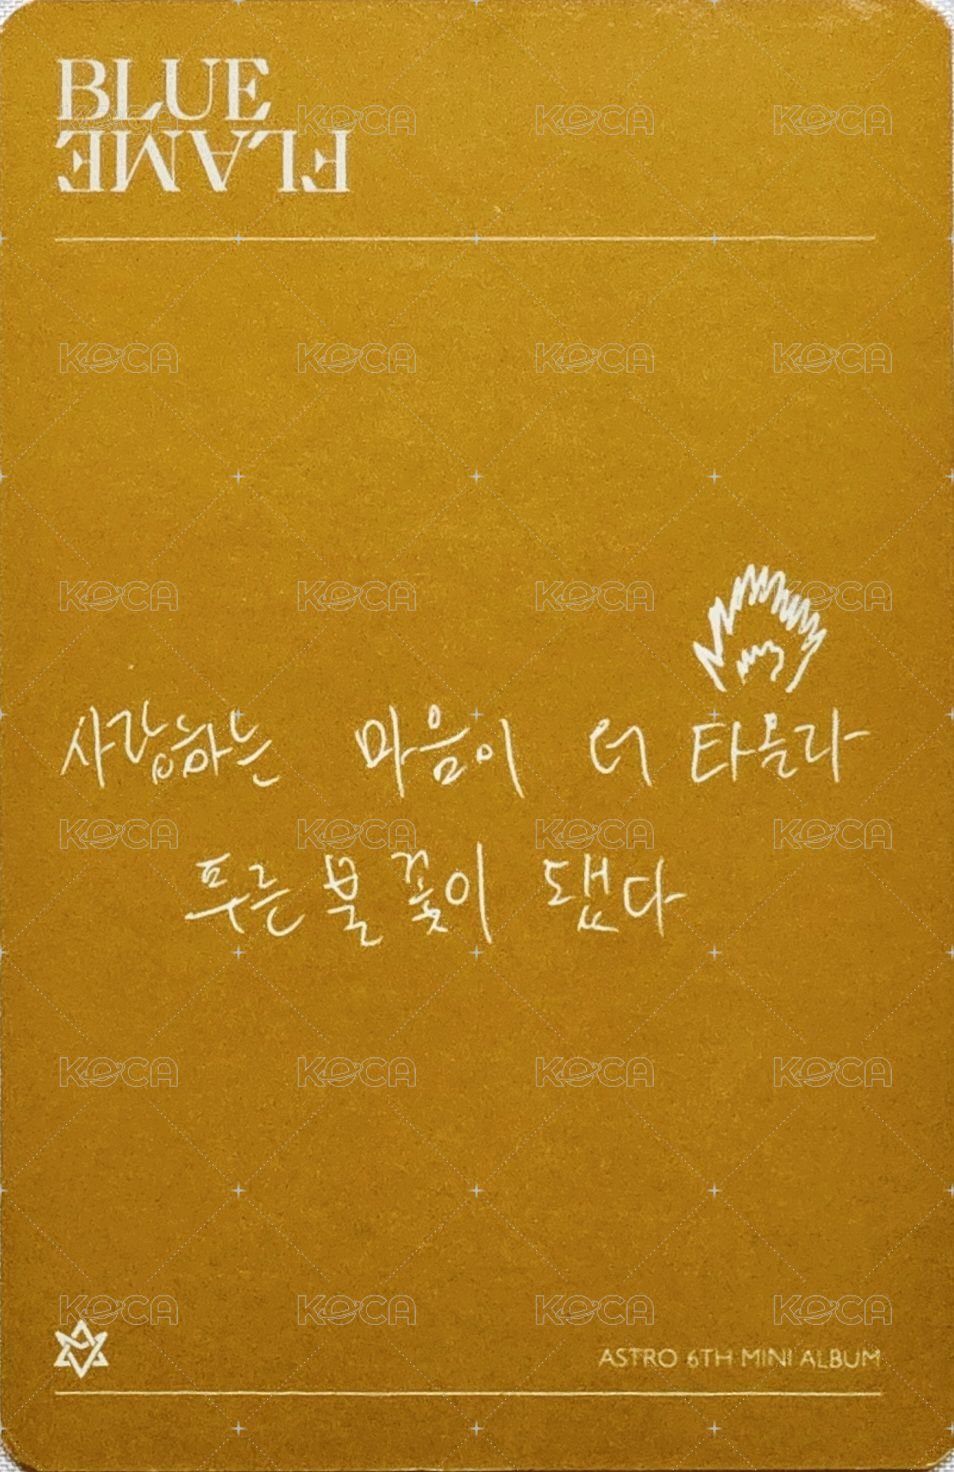 BLUE
FLAME
사랑하는 마음이 더 타올라
푸른 불꽃이 됐다
ASTRO 6TH MINI ALBUM